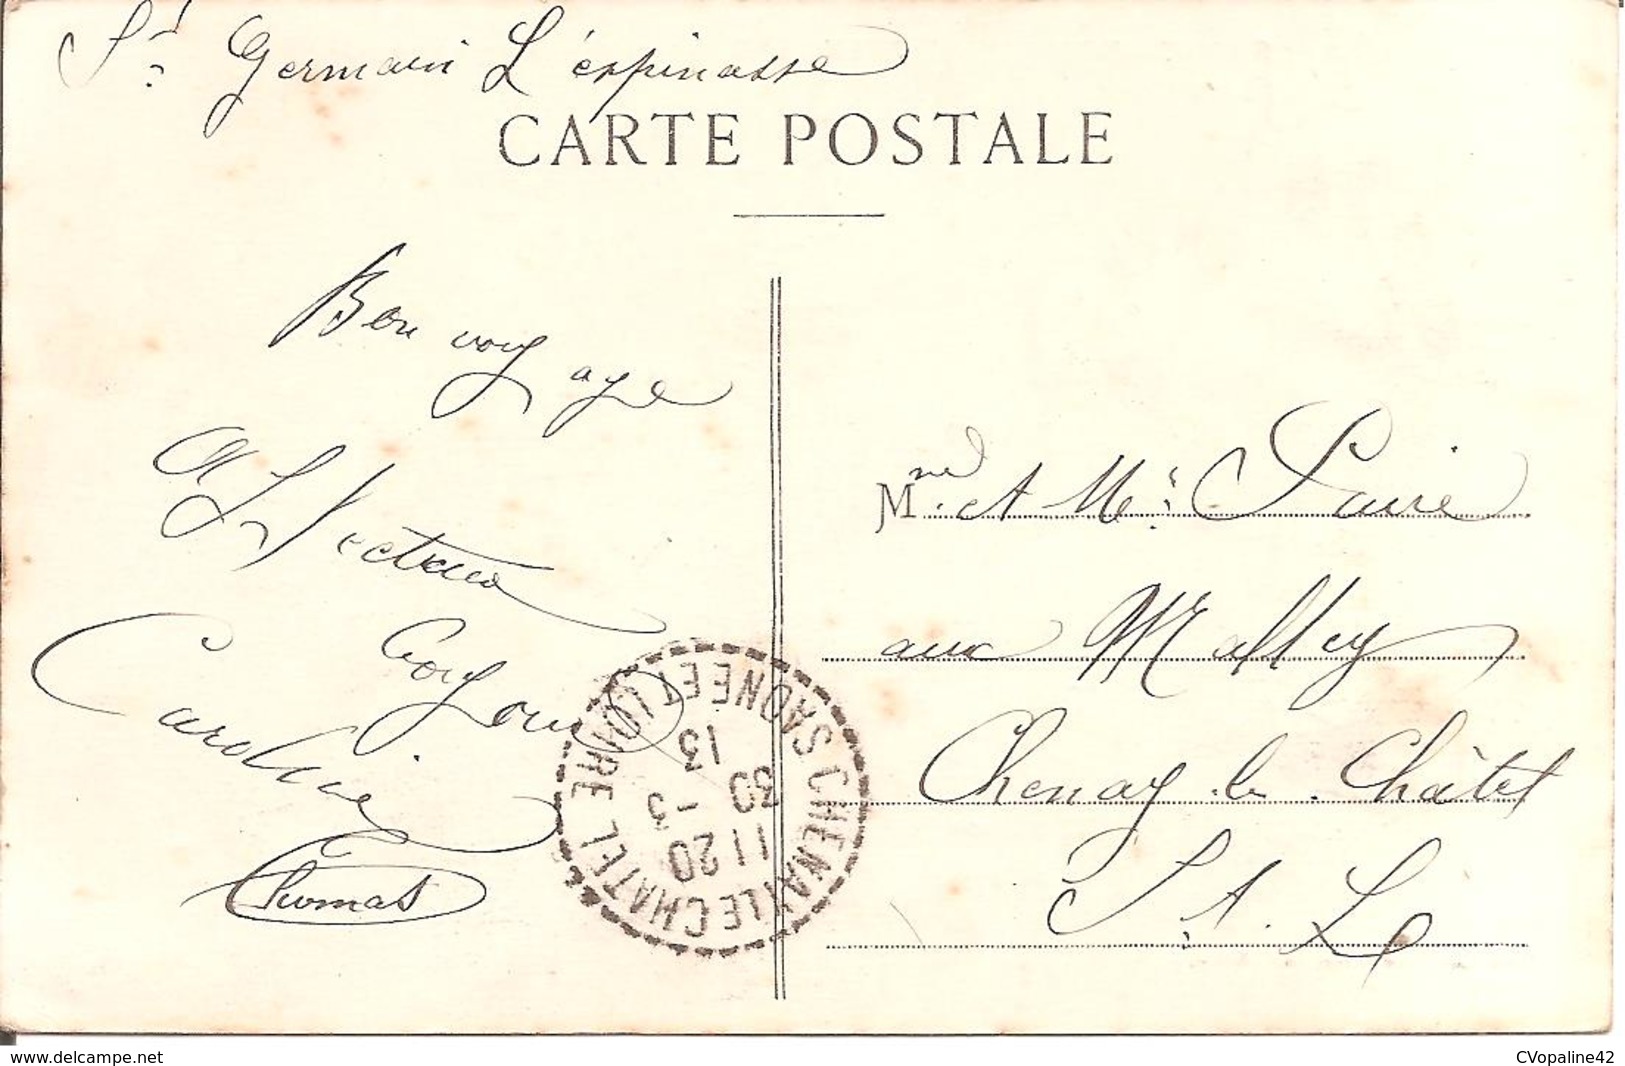 St Germain L'espinasse
CARTE POSTALE
Bon voyage
Caroline
Thomas
CHENAY LE CHATEL
SAONE ET LOIRE
11 20
30 -3
13
Mme et Mr
aux Malley
Chenay le Châtel
S. et L.
www.delcampe.net
CVopaline42